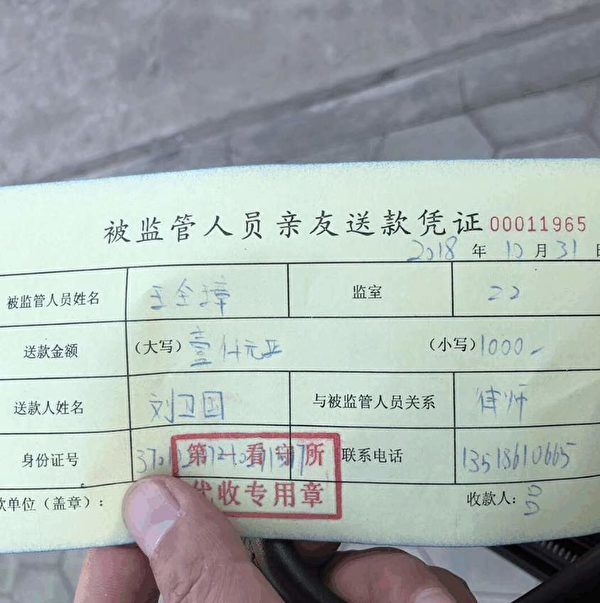 被监管人员亲友送款凭证 00011965
2018 年 10 月 31 日
被监管人员姓名 王全璋 监室 22
送款金额 (大写) 壹仟元正 (小写) 1000-
送款人姓名 刘卫国 与被监管人员关系 律师
身份证号 联系电话 13518610665
第一看守所
代收专用章
款单位（盖章）： 收款人：